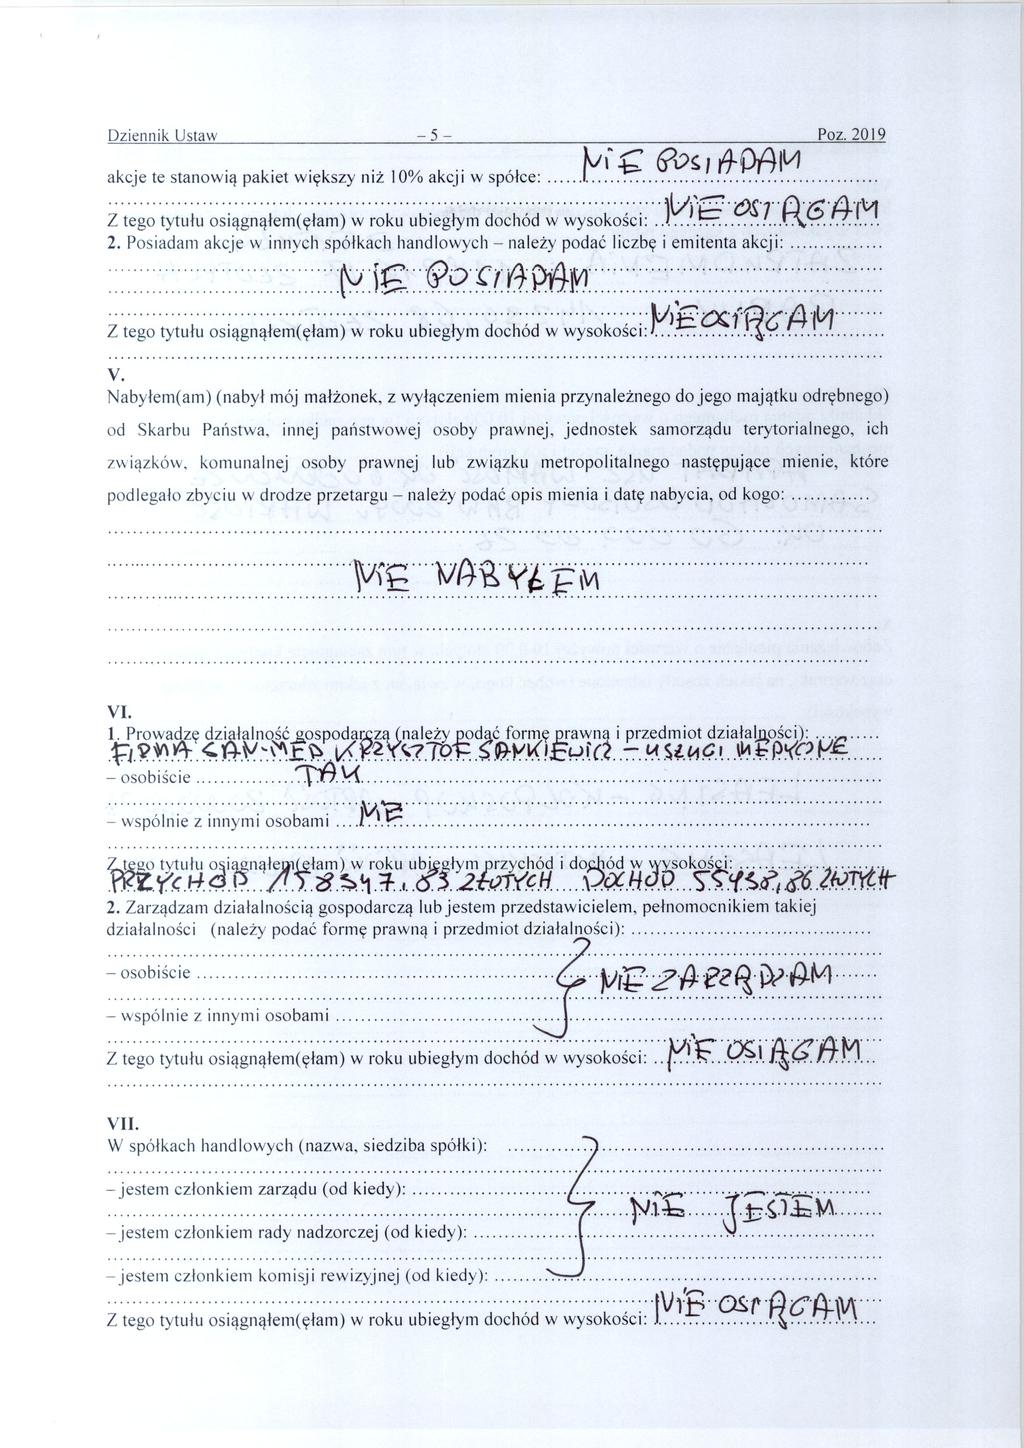 Dziennik Ustaw – 5 – Poz. 2019
akcje te stanowią pakiet większy niż 10% akcji w spółce: ...... NIE POSIADAM
Z tego tytułu osiągnąłem(ęłam) w roku ubiegłym dochód w wysokości: .. NIE OSIĄGAM
2. Posiadam akcje w innych spółkach handlowych – należy podać liczbę i emitenta akcji: ..............
NIE POSIADAM
Z tego tytułu osiągnąłem(ęłam) w roku ubiegłym dochód w wysokości: NIE OSIĄGAM
V.
Nabyłem(am) (nabył mój małżonek, z wyłączeniem mienia przynależnego do jego majątku odrębnego)
od Skarbu Państwa, innej państwowej osoby prawnej, jednostek samorządu terytorialnego, ich
związków, komunalnej osoby prawnej lub związku metropolitalnego następujące mienie, które
podlegało zbyciu w drodze przetargu – należy podać opis mienia i datę nabycia, od kogo: ............
NIE NABYŁEM
VI.
1. Prowadzę działalność gospodarczą (należy podać formę prawną i przedmiot działalności): ...........
FIRMA SAN-MED KRZYSZTOF SANKIEWICZ – USŁUGI MEDYCZNE
– osobiście ............... TAK
– wspólnie z innymi osobami .... NIE
Z tego tytułu osiągnąłem(ęłam) w roku ubiegłym przychód i dochód w wysokości: ......................
PRZYCHÓD ZŁOTYCH DOCHÓD ZŁOTYCH
2. Zarządzam działalnością gospodarczą lub jestem przedstawicielem, pełnomocnikiem takiej
działalności (należy podać formę prawną i przedmiot działalności): ....................................
– osobiście ............... NIE ZARZĄDZAM
– wspólnie z innymi osobami ...............
Z tego tytułu osiągnąłem(ęłam) w roku ubiegłym dochód w wysokości: .. NIE OSIĄGAM
VII.
W spółkach handlowych (nazwa, siedziba spółki): ...............
– jestem członkiem zarządu (od kiedy): ...............
NIE JESTEM
– jestem członkiem rady nadzorczej (od kiedy): ...............
– jestem członkiem komisji rewizyjnej (od kiedy): ...............
Z tego tytułu osiągnąłem(ęłam) w roku ubiegłym dochód w wysokości: NIE OSIĄGAM